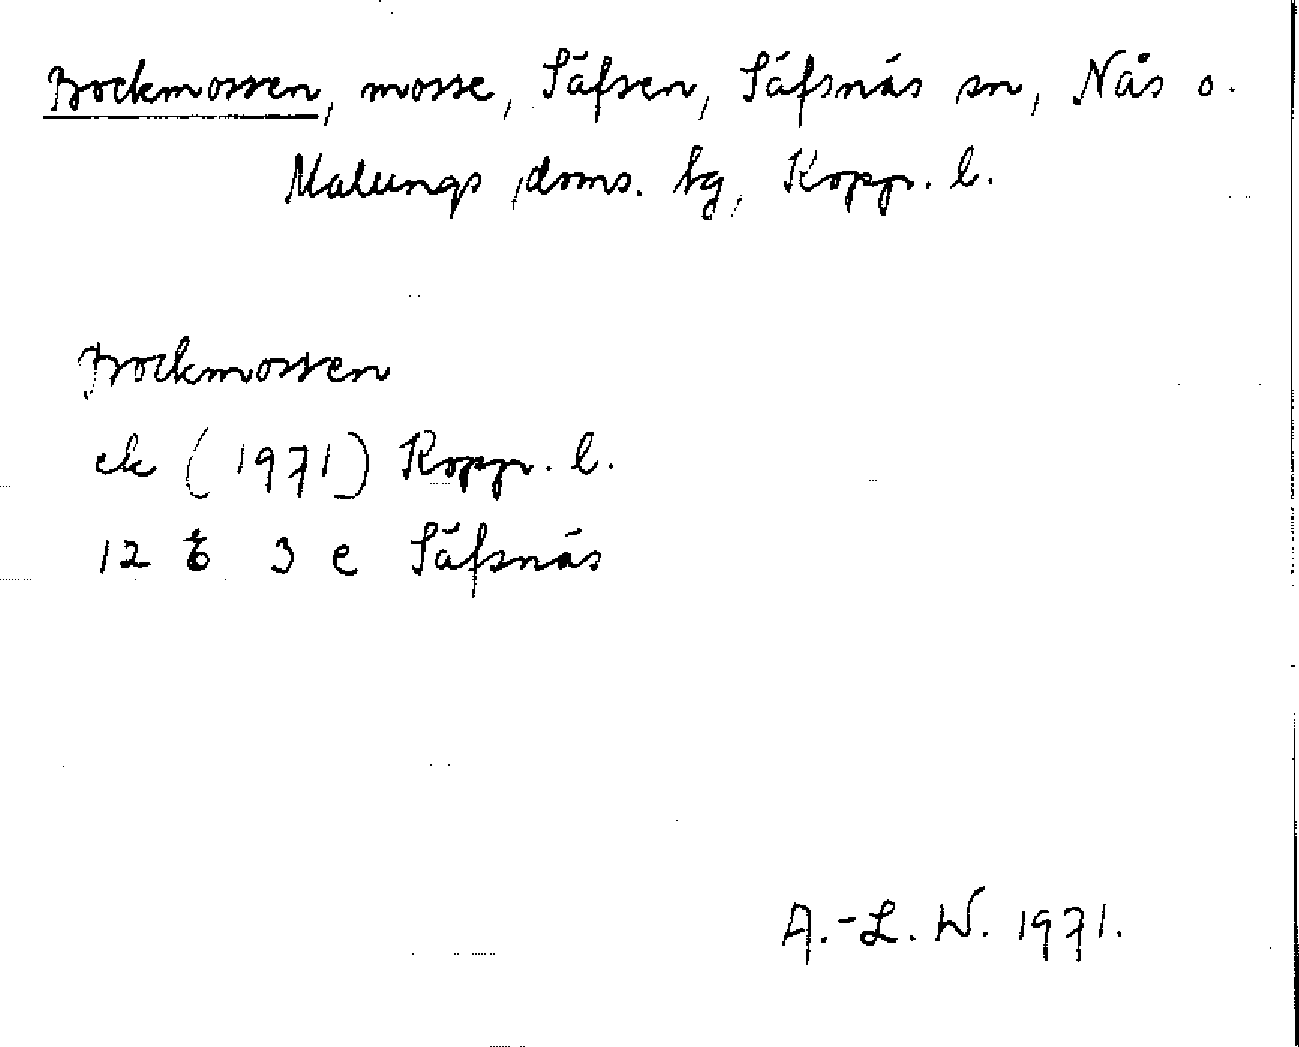 Bockmossen, mosse, Säfsen, Säfsnäs sn, Nås o.
Malungs doms. tg, Kopp. l.
Bockmossen
ek (1971) Kopp. l.
12 E 3 e Säfsnäs
A.-L. W. 1971.